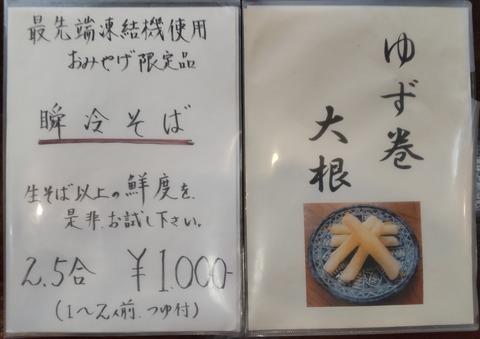 最先端凍結機使用
おみやげ限定品
瞬冷そば
生そば以上の鮮度を
是非お試し下さい。
2.5合 ¥1.000-
(1〜2人前.つゆ付)
ゆず巻
大根